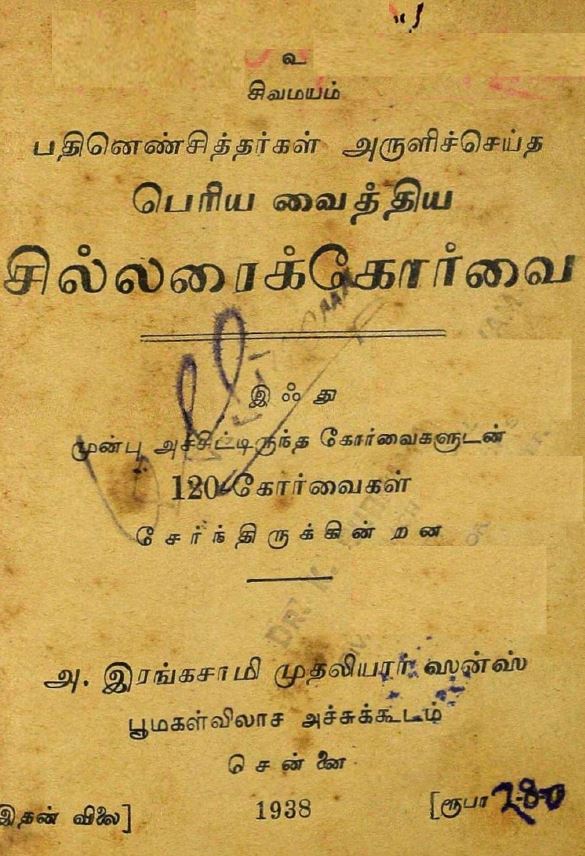 உ
சிவமயம்
பதினெண்சித்தர்கள் அருளிச்செய்த
பெரிய வைத்திய
சில்லரைக்கோர்வை
இஃது
முன்பு அச்சிட்டிருந்த கோர்வைகளுடன்
120 கோர்வைகள்
சேர்ந்திருக்கின்றன
அ. இரங்கசாமி முதலியார் ஸன்ஸ்
பூமகள்விலாச அச்சுக்கூடம்
சென்னை
இதன் விலை] 1938 [ரூபா 2-8-0